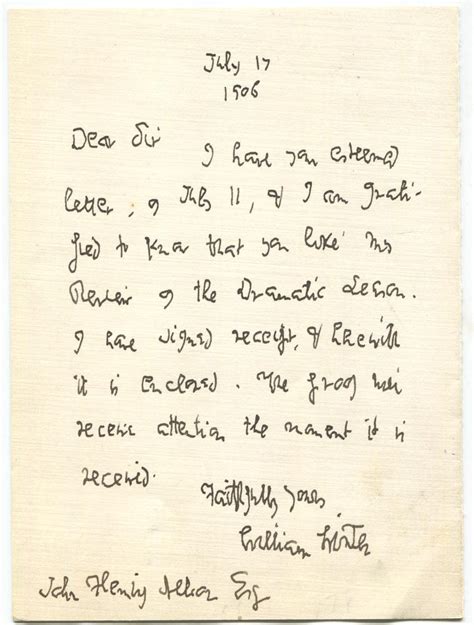 July 17
1906
Dear Sir I have your esteemed
letter, of July 11, & I am grati-
fied to know that you like my
Review of the Dramatic Season.
I have signed receipt, & herewith
it is enclosed. The proof will
receive attention the moment it is
received.
Faithfully Yours,
William Winter
John Henry Esq